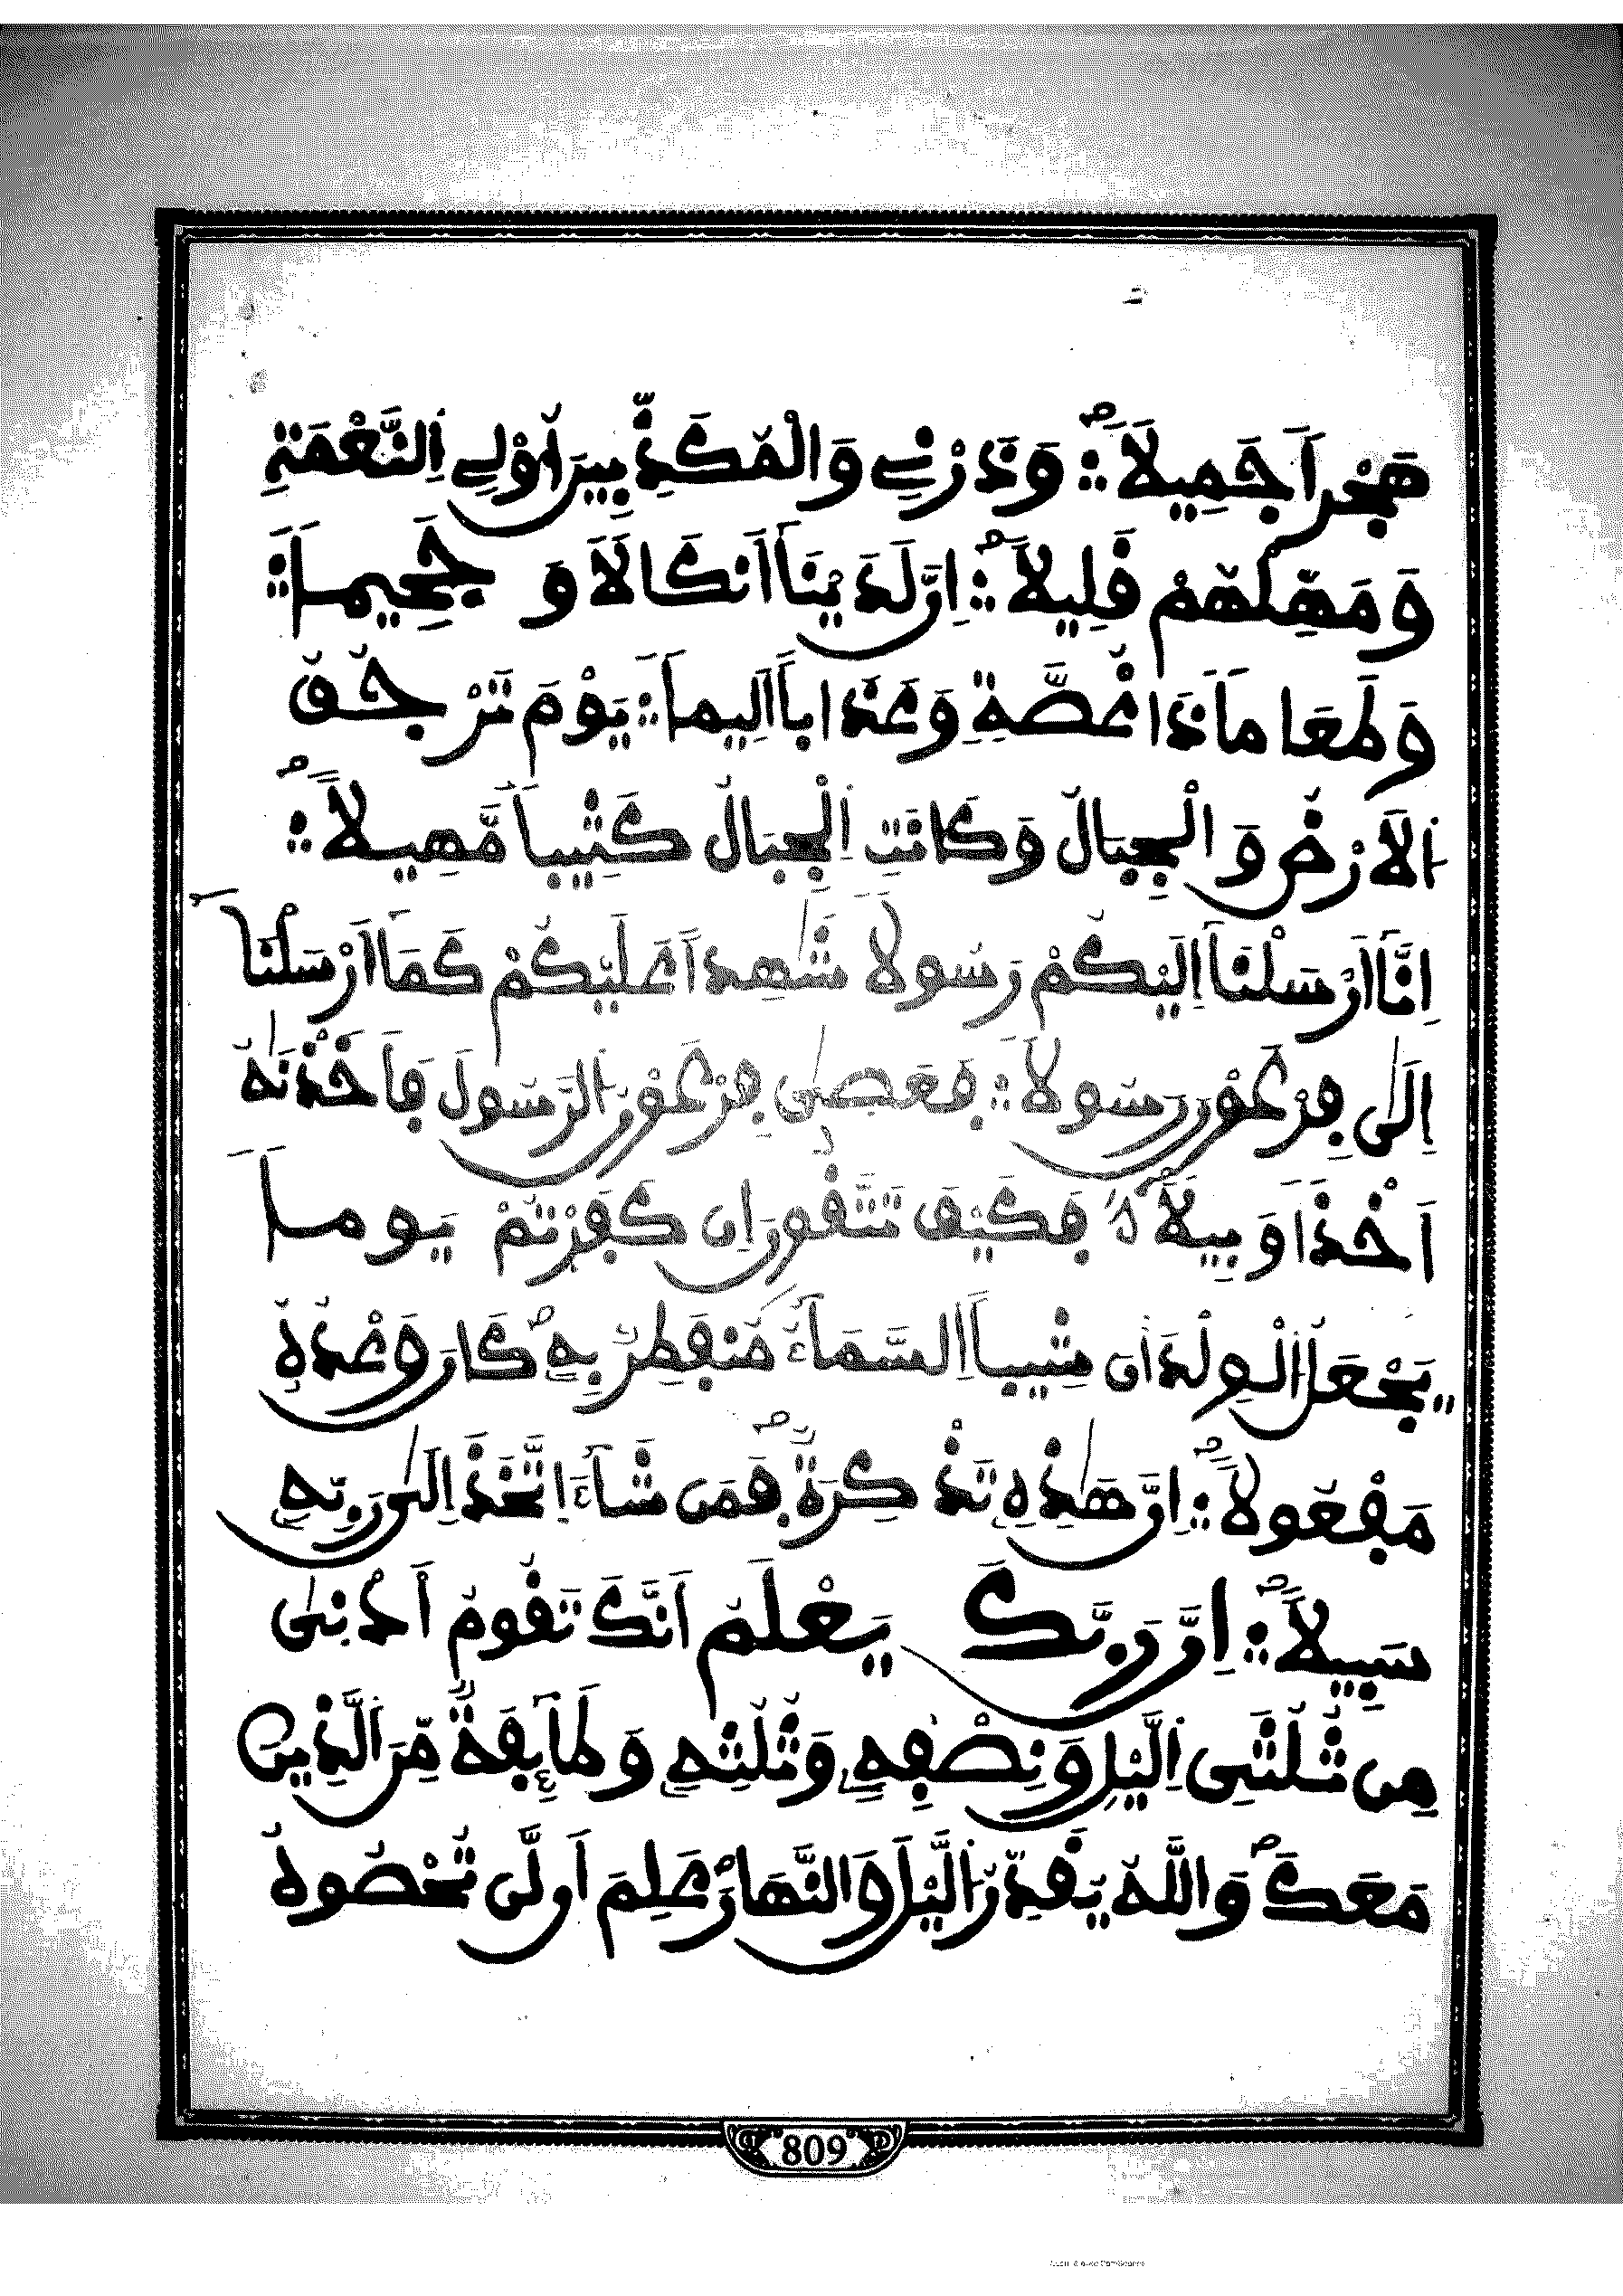 هَجْراً جَمِيلاً وَذَرْنِے وَالْمُكَذِّبِينَ أُوْلِے اِ۬لنَّعْمَةِ
وَمَهِّلْهُمْ قَلِيلاً اِنَّ لَدَيْنَا أَنكَالاً وَجَحِيماً
وَطَعَاماً ذَا غُصَّةٍ وَعَذَاباً اَلِيماً يَوْمَ تَرْجُفُ
اُ۬لَارْضُ وَالْجِبَالُ وَكَانَتِ اِ۬لْجِبَالُ كَثِيباً مَّهِيلاً
اِنَّا أَرْسَلْنَا إِلَيْكُمْ رَسُولاً شَٰهِداً عَلَيْكُمْ كَمَا أَرْسَلْنَا
إِلَىٰ فِرْعَوْنَ رَسُولاً فَعَصَىٰ فِرْعَوْنُ الرَّسُولَ فَأَخَذْنَٰهُ
أَخْذاً وَبِيلاً فَكَيْفَ تَتَّقُونَ إِن كَفَرْتُمْ يَوْماً
يَجْعَلُ الْوِلْدَٰنَ شِيباً اَ۬لسَّمَاءُ مُنفَطِرٌ بِهِ كَانَ وَعْدُهُ
مَفْعُولاً اِنَّ هَٰذِهِ تَذْكِرَةٌ فَمَن شَاءَ اَ۪تَّخَذَ إِلَىٰ رَبِّهِ
سَبِيلاً اِنَّ رَبَّكَ يَعْلَمُ أَنَّكَ تَقُومُ أَدْنَىٰ
مِن ثُلُثَىِ اِ۬لَّيْلِ وَنِصْفِهِ وَثُلُثِهِ وَطَآئِفَةٌ مِّنَ اَ۬لَّذِينَ
مَعَكَ وَاللَّهُ يُقَدِّرُ اُ۬لَّيْلَ وَالنَّهَارَ عَلِمَ أَن لَّن تُحْصُوهُ
809